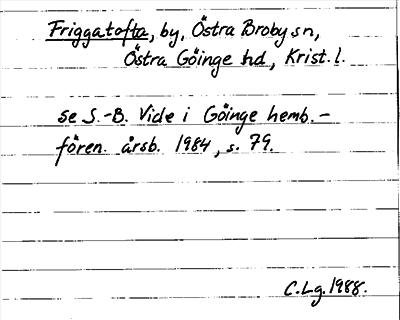 Friggatofta, by, Östra Broby sn,
Östra Göinge hd, Krist. l.
se S.-B. Vide i Göinge hemb.-
fören. årsb. 1984, s. 79.
C.Lg. 1988.